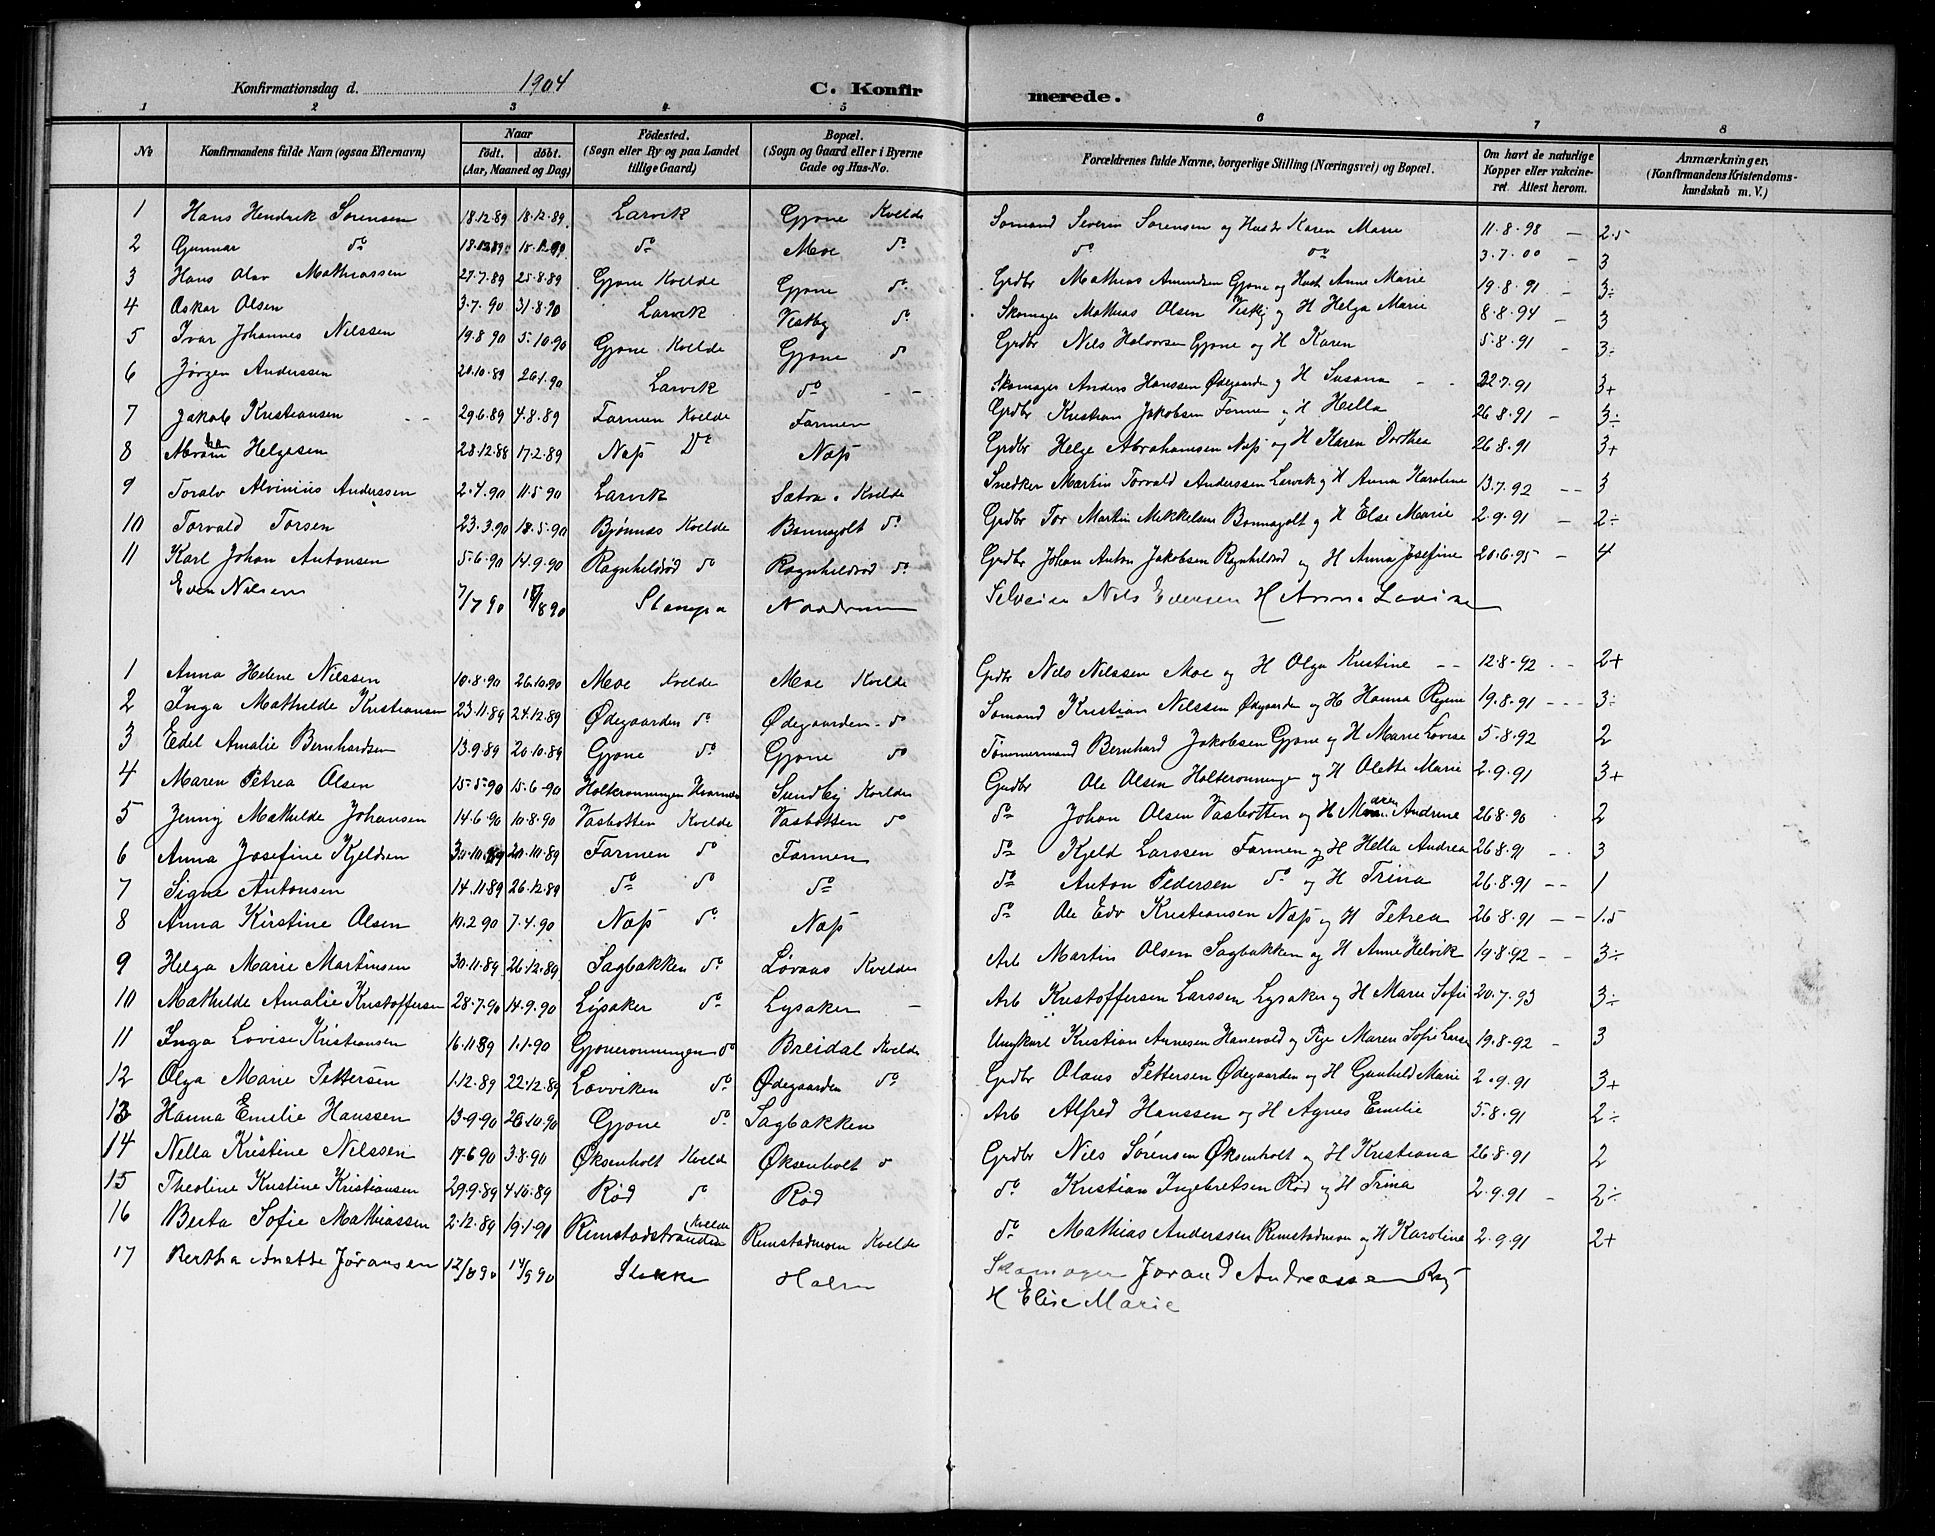 Konfirmationsdag d. 1904 C. Konfirmerede.
1 2 3 4 5 6 7 8
No Konfirmandens fulde Navn (ogsaa Efternavn) Naar födt. döbt. (Aar, Maaned og Dag) Födested. (Sogn eller By og paa Landet tillige Gaard) Bopæl. (Sogn og Gaard eller i Byerne Gade og Hus-No. Forældrenes fulde Navne, borgerlige Stilling (Næringsvei) og Bopæl. Om havt de naturlige Kopper eller vakcineret. Attest herom. Anmærkninger, (Konfirmandens Kristendomskundskab m. V.)
1 Hans Hendrik Sørensen 18.12.89 18.12.89 Larvik Gjone Kvelde Sømand Severin Sørensen og Hust Karen Marie 11.8.98 – 2.5
2 Gunnar do do Moe do do do 3.7.00 – 3
3 Hans Olav Mathiassen 27.7.89 25.8.89 Gjone Kvelde Gjone do Grdbr Mathias Amundsen Gjone og Hust Anne Marie 19.8.91 – 3÷
4 Oskar Olsen 3.7.90 31.8.90 Larvik Vestby do Skomager Mathias Olsen og H Helga Marie 8.8.94 – 3
5 Ivar Johannes Nilssen 19.8.90 5.10.90 Gjone Kvelde Gjone do Grdbr Nils Halvorsen Gjone og H Karen 5.8.91 – 3÷
6 Jørgen Anderssen 20.10.89 26.1.90 Larvik do – – Skomager Anders Hanssen Ødegaarden og H Susana – 22.7.91 3+
7 Jakob Kristiansen – – 29.6.89 4.8.89 Farmen Kvelde Farmen Grdbr Kristian Jakobsen Farmen og H Hella 26.8.91 – 3÷
8 Abraham Helgesen 28.12.88 17.2.89 Næss Do Næss Grdbr Helge Abrahamsen Næss og H Karen Dorthea 26.8.91 3+
9 Toralv Alvinius Anderssen 2.4.90 11.5.90 Larvik Sætra i Kvelde Snedker Martin Torvald Anderssen Larvik og H Anna Karoline 13.7.92 – – 3
10 Torvald Torsen 23.3.90 18.5.90 Bjønnes Kvelde Bonnegolt do Grdbr Tor Martin Mikkelsen Bonnegolt og H Else Marie 2.9.91 – 2÷
11 Karl Johan Antonsen 5.6.90 14.9.90 Ragnhildrød do Ragnhildrød do Grdbr Johan Anton Jakobsen Ragnhildrød og H Anna Josefine 20.6.95 – 4
Even Nilsen 7/7 90 Slangpa Selveier Nils Evensen H Anna Lovise
1 Anna Helene Nilssen 10.8.90 26.10.90 Moe Kvelde Moe Kvelde Grdbr Nils Nilssen Moe og H Olga Kristine – – 12.8.92 – – 2+
2 Inga Mathilde Kristiansen 23.11.89 24.12.89 Ødegaarden do Ødegaarden do Sømand Kristian Nilssen Ødegaarden og H Hanna Regine 19.8.91 – – – 3÷
3 Edel Amalie Bernhardsen 13.9.89 20.10.89 Gjone do Gjone do Tømmermand Bernhard Jakobsen Gjone og H Marie Lovise 5.8.92 2
4 Maren Petrea Olsen 15.5.90 15.6.90 Holterønningen Hvarnes Sundby Kvelde Grdbr Ole Olsen Holterønningen og H Olette Marie 2.9.91 3+
5 Jenny Mathilde Johansen 14.6.90 10.8.90 Vasbotten Kvelde Vasbotten do do Johan Olsen Vasbotten og H Maren Andrine 26.8.90 2
6 Anna Josefine Kjeldsen 20.10.89 Farmen do Farmen do Kjeld Larssen Farmen og H Hella Andrea 26.8.91 – 3
7 Signe Antonsen 14.11.89 26.12.89 do do do do Anton Pedersen do og H Trina 26.8.91 – – 1
8 Anna Kirstine Olsen 10.2.90 7.4.90 Næss do Næss do Ole Edv Kristiansen Næss og H Petrea 26.8.91 – – 1.5
9 Helga Marie Martinsen 30.11.89 26.12.89 Sagbakken do Løvaas Kvelde Arb Martin Olsen Sagbakken og H Anne Helvik 19.8.92 – – 3÷
10 Mathilde Amalie Kristoffersen 28.7.90 14.9.90 Lysaker do Lysaker – Arb Kristoffersen Larssen Lysaker og H Marie Sofie 20.7.93 3÷
11 Inga Lovise Kristiansen 16.11.89 1.1.90 Gjonerønningen do Breidal Kvelde Ungkarl Kristian Arnesen Hanevold og Pige Maren Sofie Larsen 19.8.92 – 3
12 Olga Marie Pettersen 1.12.89 22.12.89 Løvviken do Ødegaarden do Grdbr Olaus Pettersen Ødegaarden og H Gunhild Marie 2.9.91 3+
13 Hanna Emilie Hanssen 13.9.90 26.10.90 Gjone do Sagbakken Arb Alfred Hanssen og H Agnes Emilie 5.8.91 2÷
14 Nella Kristine Nilssen 17.6.90 3.8.90 Øksenholt Kvelde Øksenholt do Grdbr Nils Sørensen Øksenholt og H Kristiana 26.8.91 2
15 Theoline Kristine Kristiansen 29.9.89 4.10.89 Rød do Rød do Kristian Ingebretsen Rød og H Trina 2.9.91 – 2÷
16 Berta Sofie Mathiassen 2.12.89 19.1.90 Rimstadstranden Kvelde Rimstadmoen Kvelde do Mathias Anderssen Rimstadmoen og H Karoline 2.9.91 2+
17 Bertha Anette Jøransen 14/9 90 Stokke Holm Skomager Jøran P Andreassen
H Elise Marie